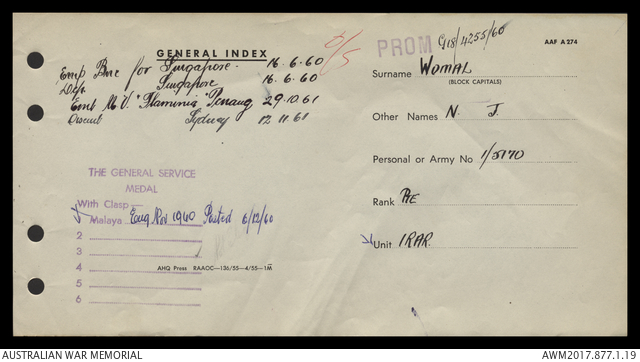 GENERAL INDEX
Emp Bne for Singapore. 16.6.60
Dep Singapore 16.6.60
Emb M.V. "Flaminia" Penang 29.10.61
Disemb Sydney 12.11.61
THE GENERAL SERVICE
MEDAL
With Clasp—
Malaya Eng Nov 1960 Posted 6/12/60
2
3
4
5
6
AHQ Press RAAOC—136/55—4/55—1M
PROM G18/4255/60
AAF A 274
Surname WOMAL
(BLOCK CAPITALS)
Other Names N. J.
Personal or Army No 1/5170
Rank PTE
Unit 1RAR.
AUSTRALIAN WAR MEMORIAL
AWM2017.877.1.19